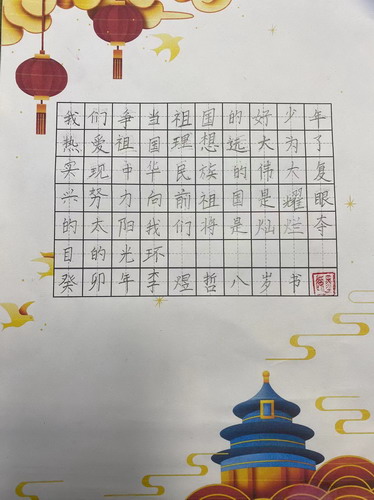 我们争当祖国的好少年
热爱祖国理想远大为了
实现中华民族的伟大复
兴努力向前祖国是耀眼
的太阳我们将是灿烂夺
目的光环
癸卯年李煜哲八岁书